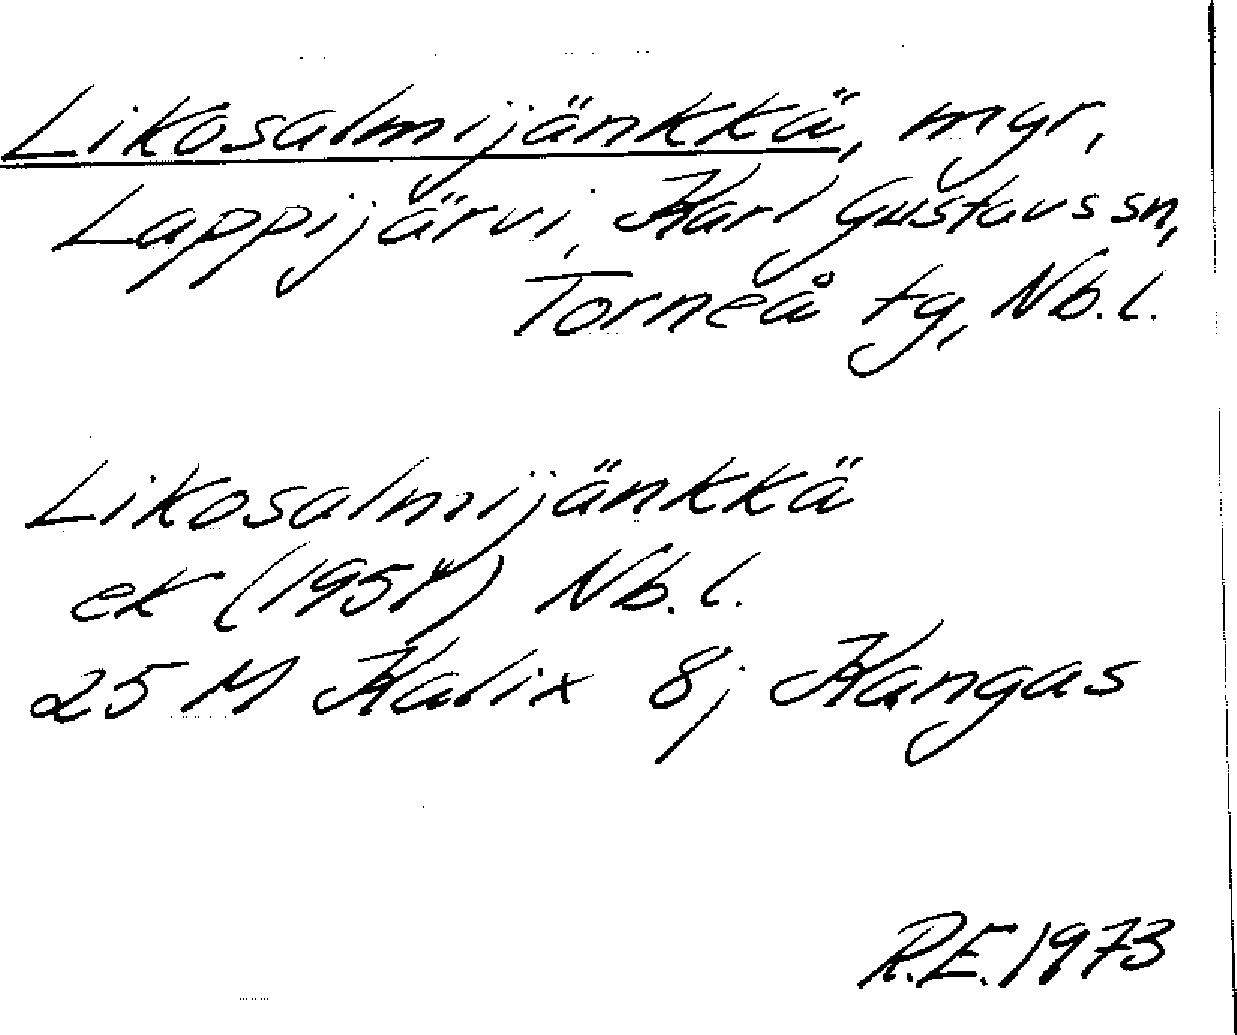 Likosalmijänkkä, myr,
Lappijärvi, Karl Gustavs sn,
Torneå tg, Nb. l.
Likosalmijänkkä
ek (1954) Nb. l.
25 M Kalix 8; Kangas
R.E. 1973